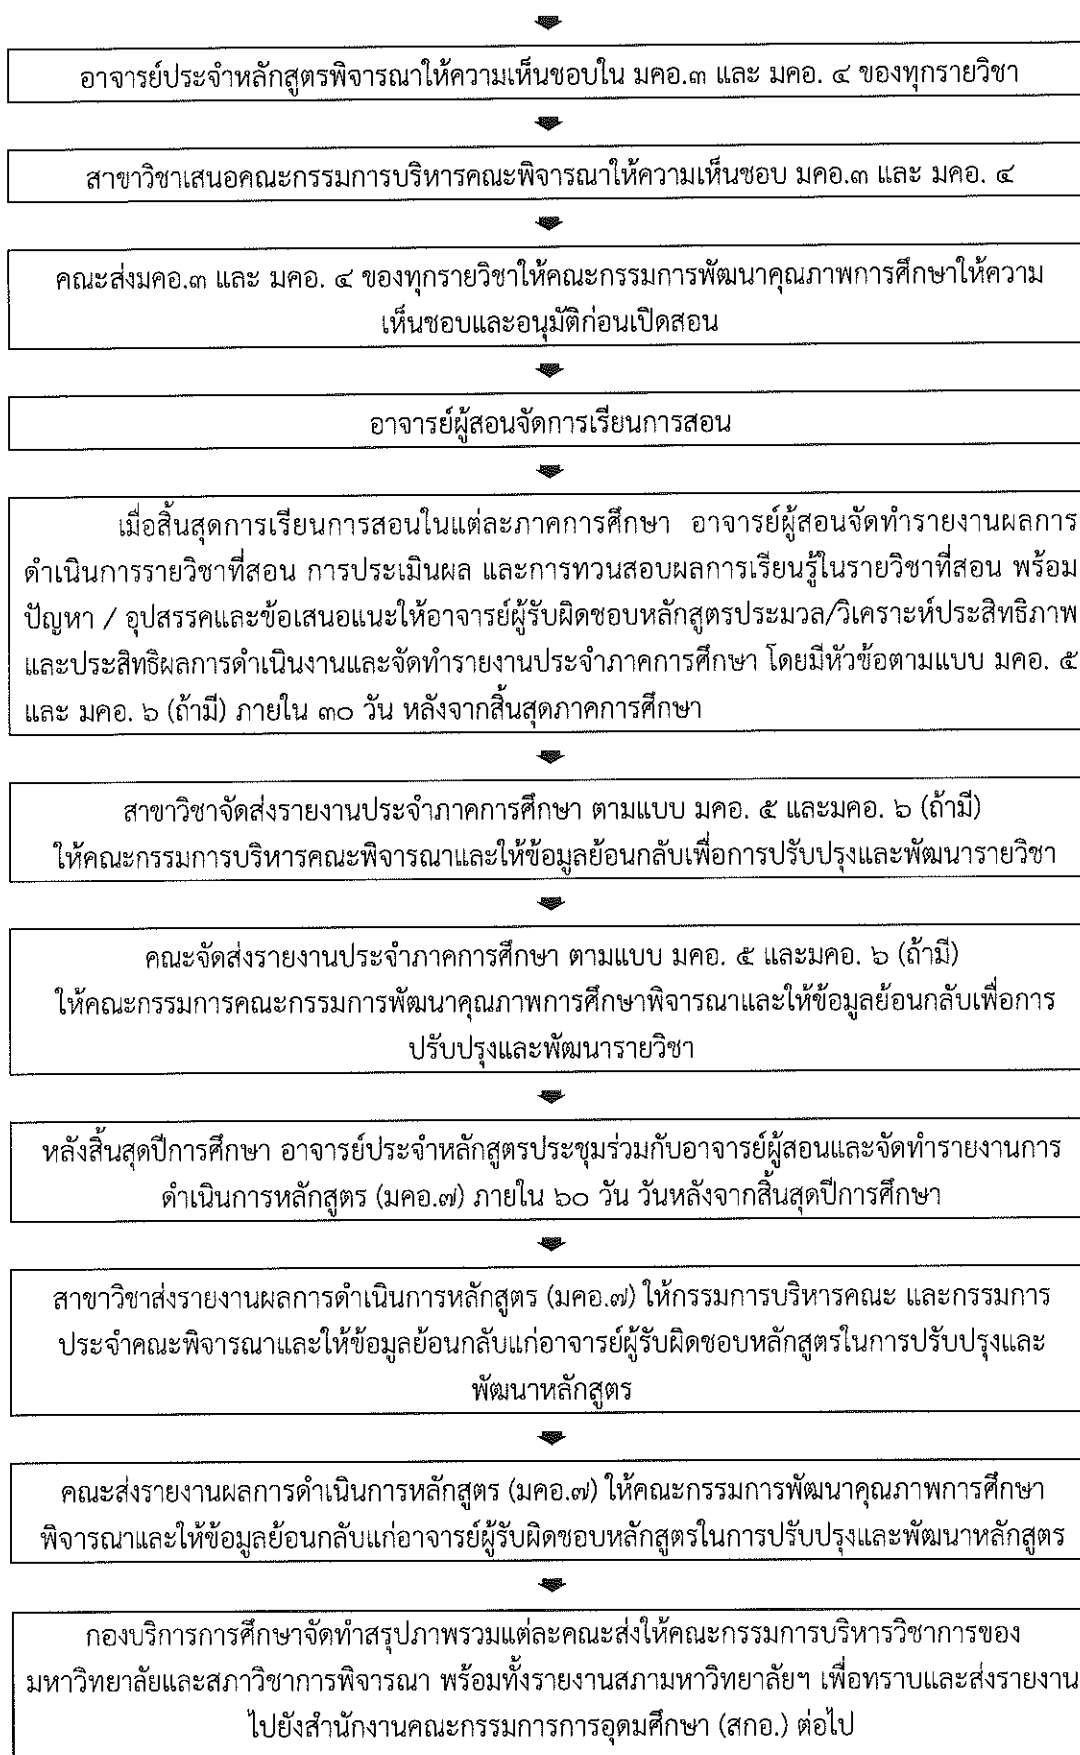 อาจารย์ประจำหลักสูตรพิจารณาให้ความเห็นชอบใน มคอ.๓ และ มคอ. ๔ ของทุกรายวิชา
สาขาวิชาเสนอคณะกรรมการบริหารคณะพิจารณาให้ความเห็นชอบ มคอ.๓ และ มคอ. ๔
คณะส่งมคอ.๓ และ มคอ. ๔ ของทุกรายวิชาให้คณะกรรมการพัฒนาคุณภาพการศึกษาให้ความ
เห็นชอบและอนุมัติก่อนเปิดสอน
อาจารย์ผู้สอนจัดการเรียนการสอน
เมื่อสิ้นสุดการเรียนการสอนในแต่ละภาคการศึกษา อาจารย์ผู้สอนจัดทำรายงานผลการ
ดำเนินการรายวิชาที่สอน การประเมินผล และการทวนสอบผลการเรียนรู้ในรายวิชาที่สอน พร้อม
ปัญหา / อุปสรรคและข้อเสนอแนะให้อาจารย์ผู้รับผิดชอบหลักสูตรประมวล/วิเคราะห์ประสิทธิภาพ
และประสิทธิผลการดำเนินงานและจัดทำรายงานประจำภาคการศึกษา โดยมีหัวข้อตามแบบ มคอ. ๕
และ มคอ. ๖ (ถ้ามี) ภายใน ๓๐ วัน หลังจากสิ้นสุดภาคการศึกษา
สาขาวิชาจัดส่งรายงานประจำภาคการศึกษา ตามแบบ มคอ. ๕ และมคอ. ๖ (ถ้ามี)
ให้คณะกรรมการบริหารคณะพิจารณาและให้ข้อมูลย้อนกลับเพื่อการปรับปรุงและพัฒนารายวิชา
คณะจัดส่งรายงานประจำภาคการศึกษา ตามแบบ มคอ. ๕ และมคอ. ๖ (ถ้ามี)
ให้คณะกรรมการคณะกรรมการพัฒนาคุณภาพการศึกษาพิจารณาและให้ข้อมูลย้อนกลับเพื่อการ
ปรับปรุงและพัฒนารายวิชา
หลังสิ้นสุดปีการศึกษา อาจารย์ประจำหลักสูตรประชุมร่วมกับอาจารย์ผู้สอนและจัดทำรายงานการ
ดำเนินการหลักสูตร (มคอ.๗) ภายใน ๖๐ วัน วันหลังจากสิ้นสุดปีการศึกษา
สาขาวิชาส่งรายงานผลการดำเนินการหลักสูตร (มคอ.๗) ให้กรรมการบริหารคณะ และกรรมการ
ประจำคณะพิจารณาและให้ข้อมูลย้อนกลับแก่อาจารย์ผู้รับผิดชอบหลักสูตรในการปรับปรุงและ
พัฒนาหลักสูตร
คณะส่งรายงานผลการดำเนินการหลักสูตร (มคอ.๗) ให้คณะกรรมการพัฒนาคุณภาพการศึกษา
พิจารณาและให้ข้อมูลย้อนกลับแก่อาจารย์ผู้รับผิดชอบหลักสูตรในการปรับปรุงและพัฒนาหลักสูตร
กองบริการการศึกษาจัดทำสรุปภาพรวมแต่ละคณะส่งให้คณะกรรมการบริหารวิชาการของ
มหาวิทยาลัยและสภาวิชาการพิจารณา พร้อมทั้งรายงานสภามหาวิทยาลัยฯ เพื่อทราบและส่งรายงาน
ไปยังสำนักงานคณะกรรมการการอุดมศึกษา (สกอ.) ต่อไป